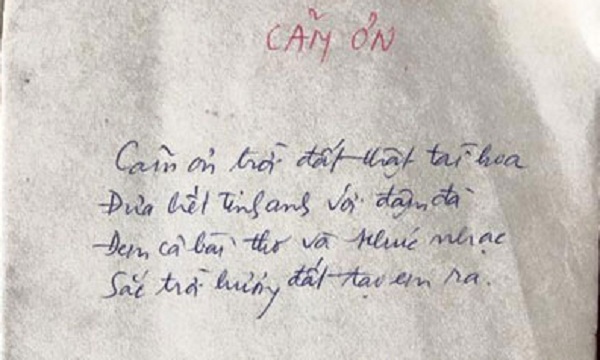 CẢM ƠN
Cảm ơn trời đất thật tài hoa
Đưa hết tinh anh với đậm đà
Đem cả bài thơ và khúc nhạc
Sắc trời hương đất tạo em ra.